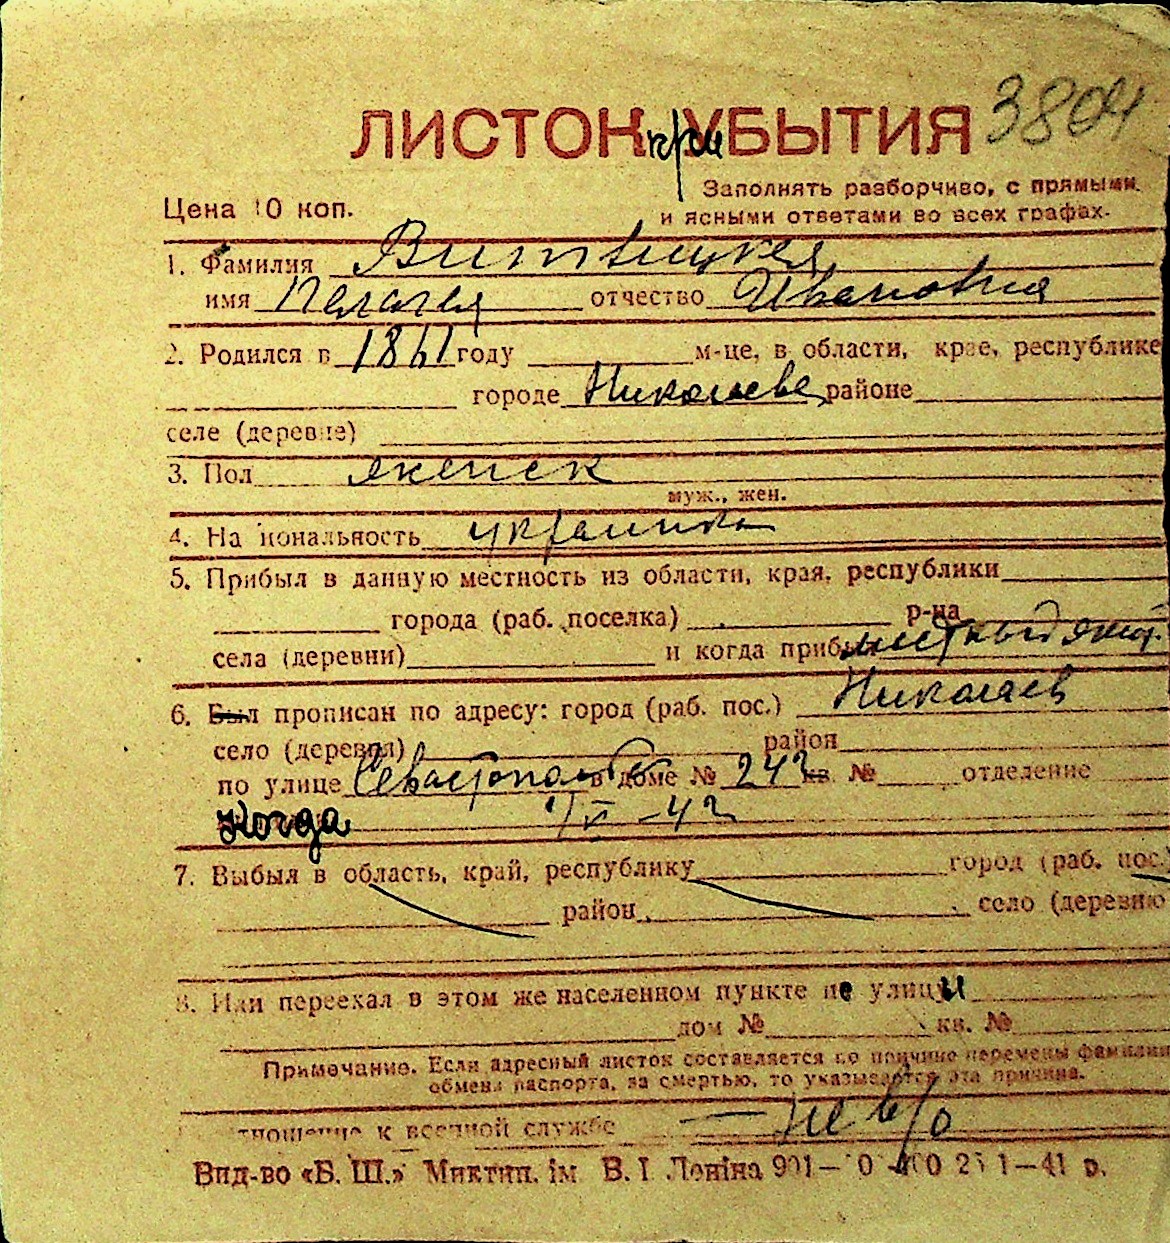 3804
ЛИСТОК прУБЫТИЯ
Цена 10 коп.
Заполнять разборчиво, с прямыми
и ясными ответами во всех графах.
1. Фамилия Витвицкая
имя Пелагея отчество Ивановна
2. Родился в 1861 году м-це, в области, крае, республике
городе Николаеве районе
селе (деревне)
3. Пол женск
муж., жен.
4. Национальность украинка
5. Прибыл в данную местность из области, края, республики
города (раб. поселка) р-на
села (деревни) и когда прибыл местный жит.
6. Был прописан по адресу: город (раб. пос.) Николаев
село (деревня) район
по улице Севастопольск в доме № 242 кв. № отделение
Когда
7. Выбыл в область, край, республику город (раб. пос.)
район село (деревню
8. Или переехал в этом же населенном пункте не улицы
дом № кв. №
Примечание. Если адресный листок составляется по причине перемены фамилии
обмена паспорта, за смертью, то указывается эта причина.
тношение к военной службе — не в/о
Вид-во «Б. Ш.» Миктип. ім В. І Леніна 1—41 р.